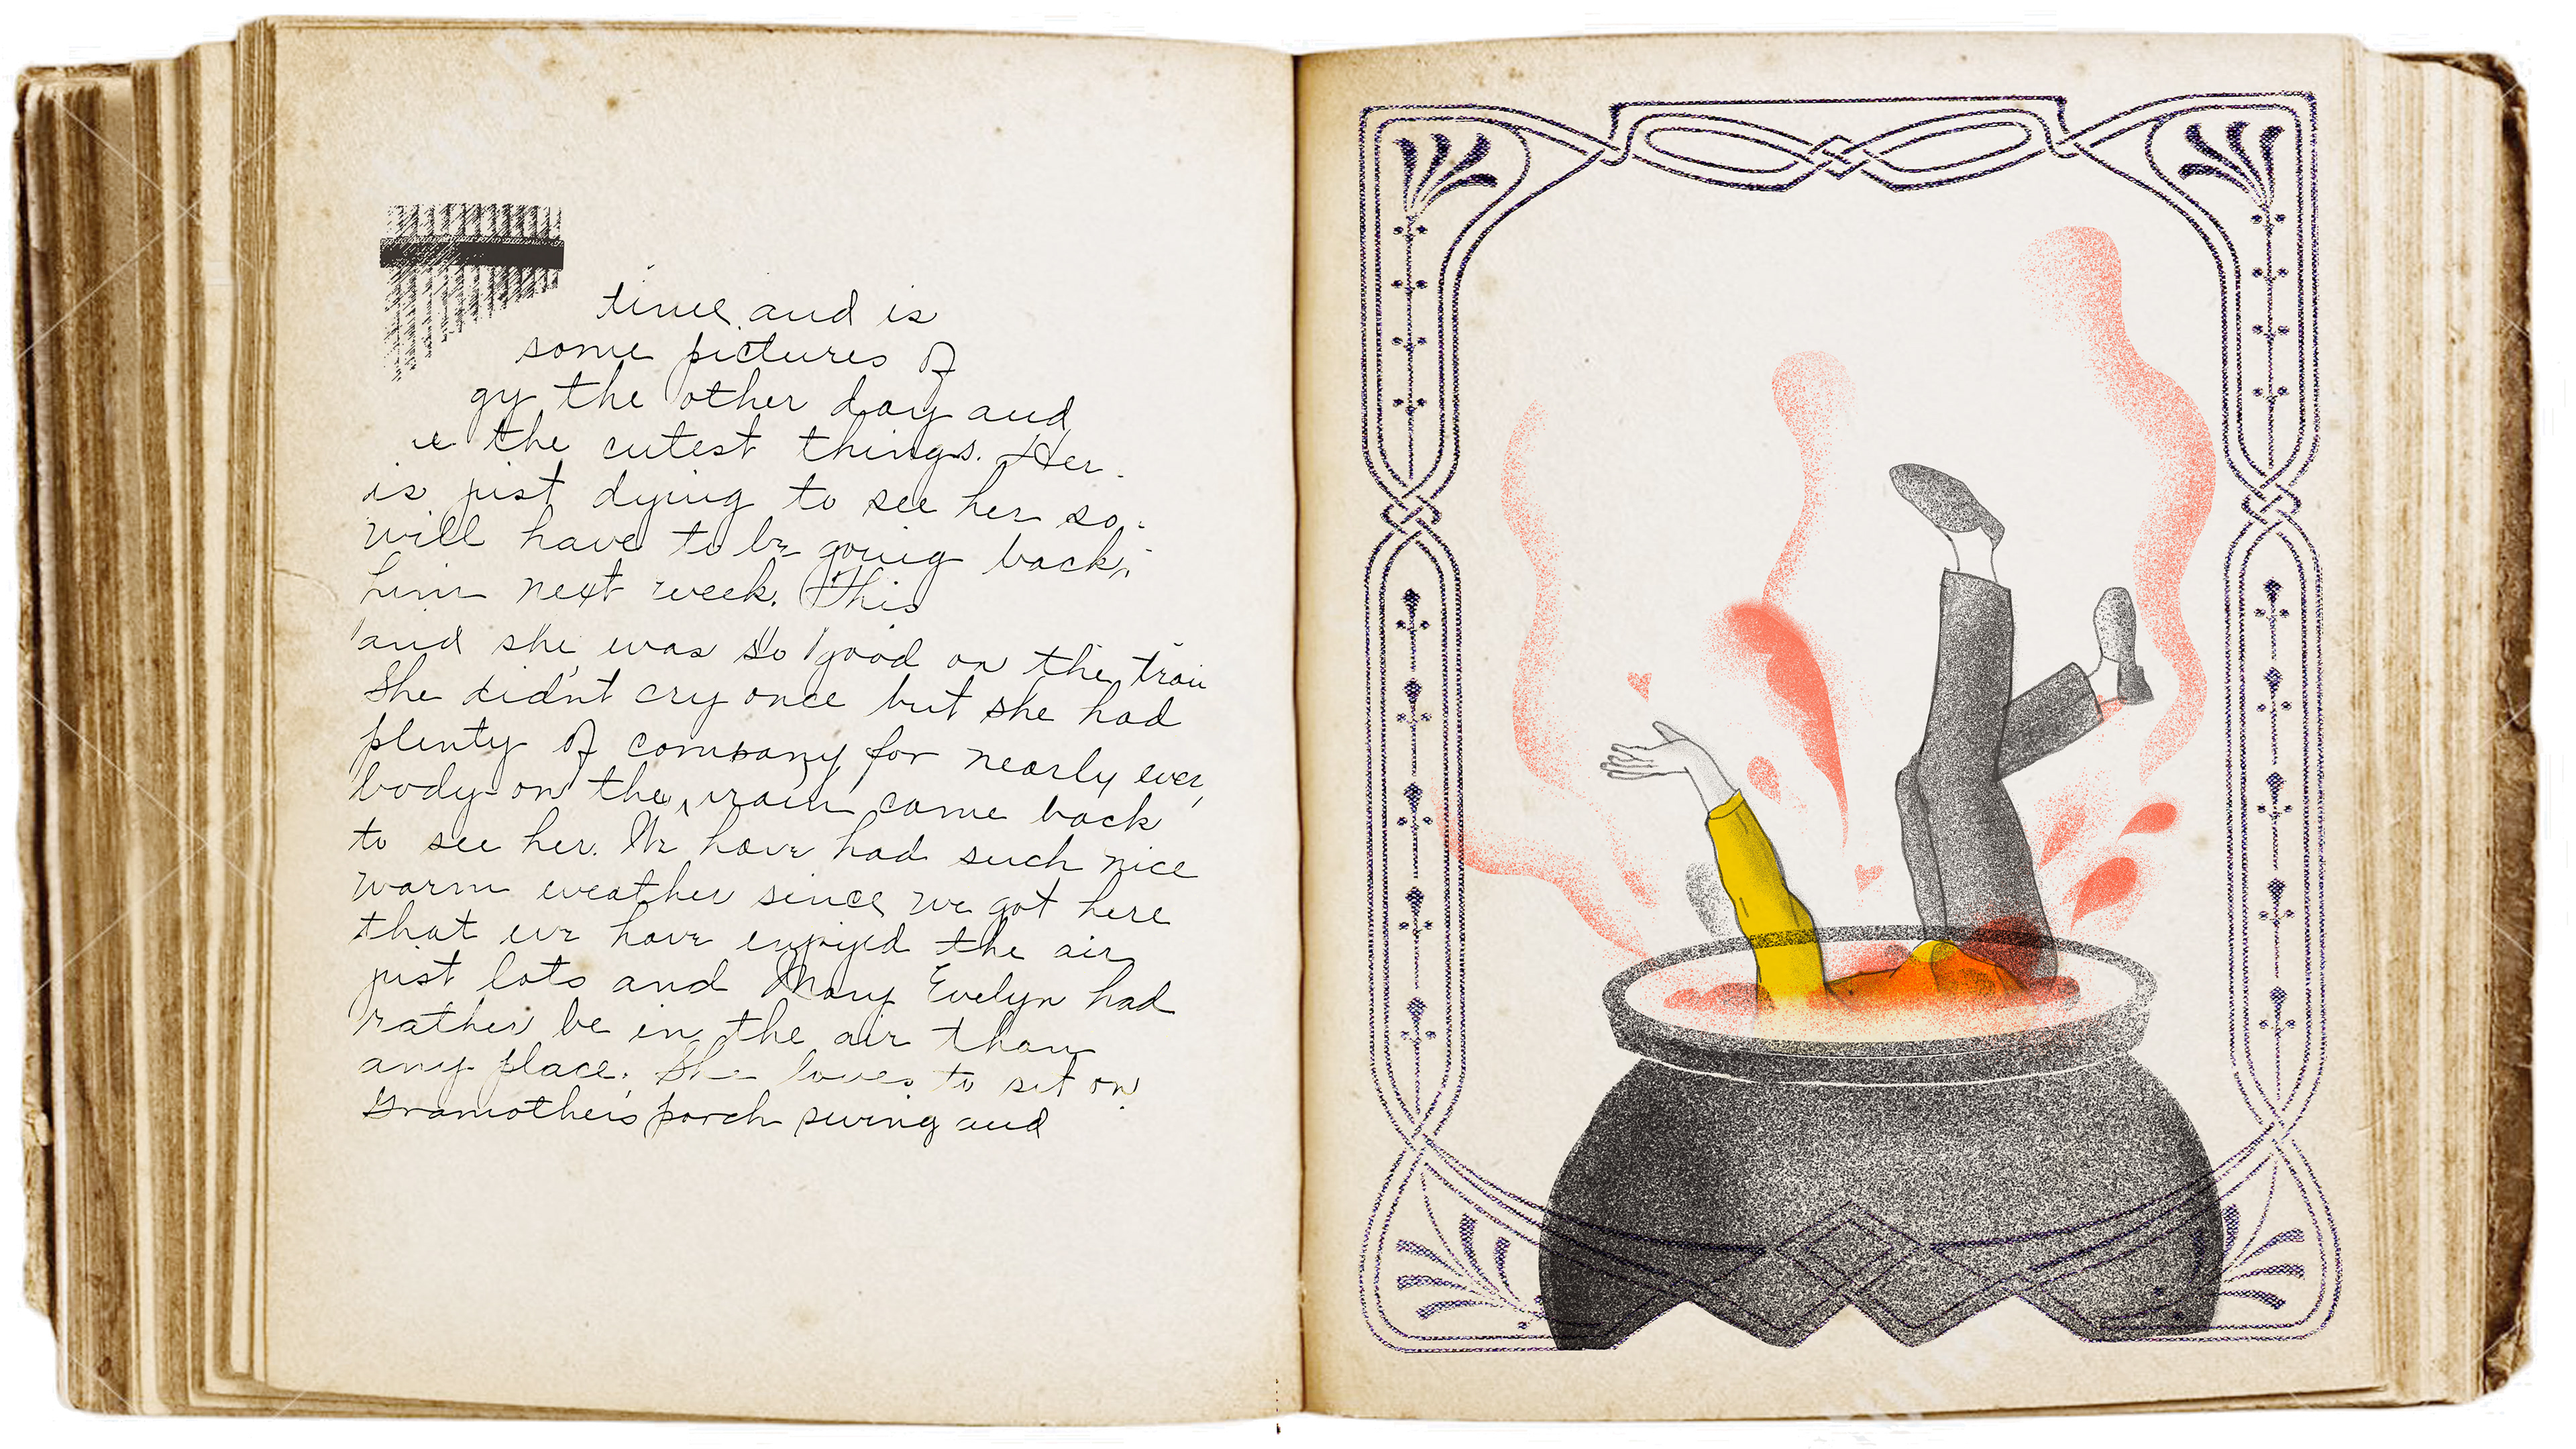 time and is
some pictures of
gy the other day and
e the cutest things. Her
is just dying to see her so
will have to be going back
him next week. This
and she was so good on the train
She didn't cry once but she had
plenty of company for nearly ever
body on the train came back
to see her. We have had such nice
warm weather since we got here
that we have enjoyed the air
just lots and Mary Evelyn had
rather be in the air than
any place. She loves to sit on
Gramother's porch swing and